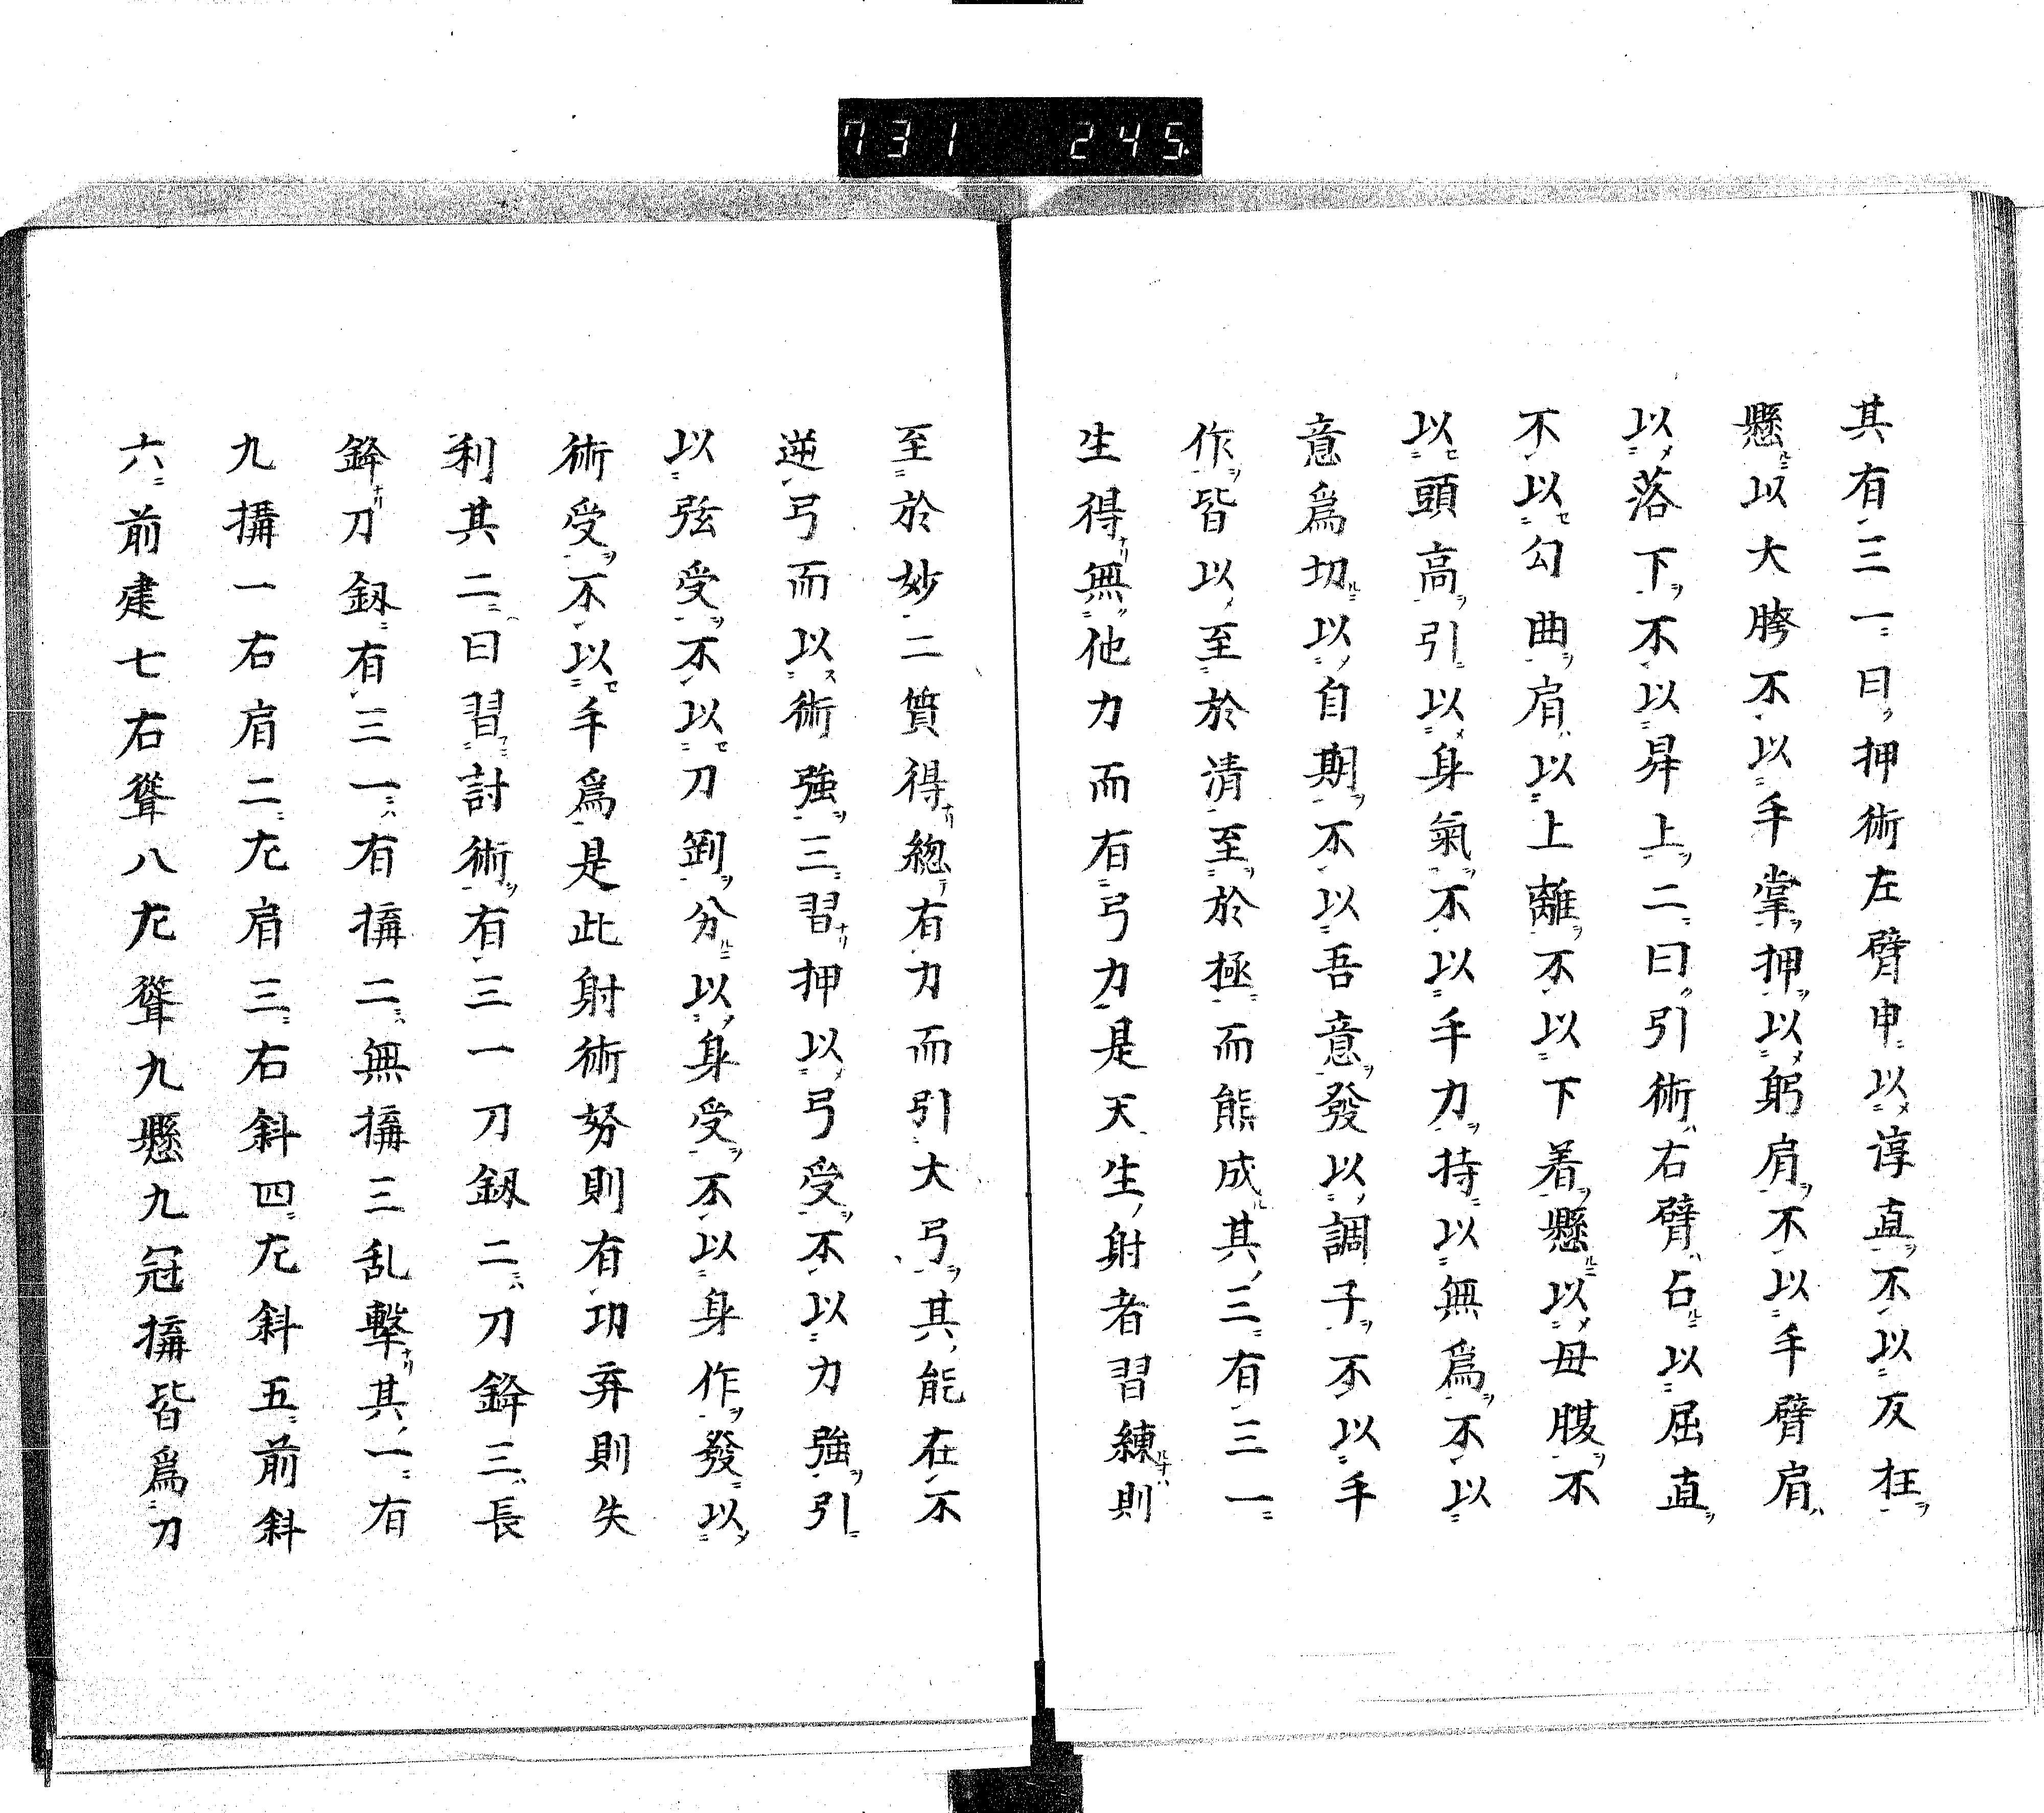 731 245
其有三一曰押術左臂申以淳直不以友枉
懸以大胯不以手掌押以躬肩不以手臂肩
以落下不以昇上二曰引術右臂占以屈直
不以勾曲肩以上離不以下着懸以毋腹不
以頭高引以身氣不以手力持以無爲不以
意爲切以自期不以吾意發以調子不以手
作皆以至於清至於極而熊成其三有三一
生得無他力而有弓力是天生射者習練則
至於妙二質得総有力而引大弓其能在不
逆弓而以術強三習押以弓受不以力強引
以弦受不以刀劉分以身受不以身作發以
術受不以手爲是此射術努則有功弃則失
利其二曰習討術有三一刀釼二刀鋒三長
鋒刀釼有三一有搆二無搆三乱擊其一有
九搆一右肩二左肩三右斜四左斜五前斜
六前建七右聳八左聳九懸九冠搆皆爲刀